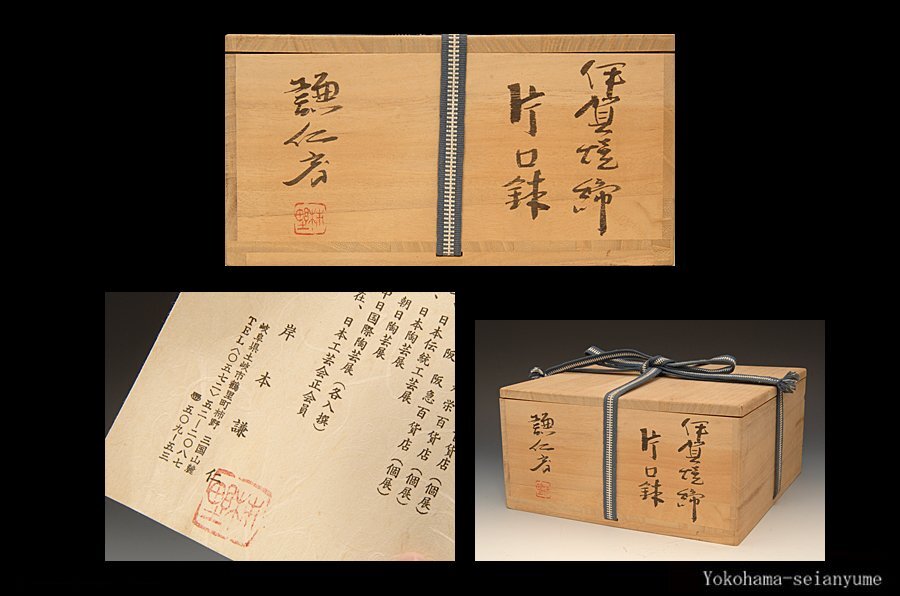 伊賀焼締
片口鉢
謙仁考
阪栄百貨店(個展)
阪急百貨店(個展)
日本伝統工芸展
日本陶芸展
朝日陶芸展
国際陶芸展(各入撰)
在、日本工芸会正会員
岸本謙仁
岐阜県土岐市鶴里町柿野
三国山麓
TEL(〇五七二)五二-二〇八七
〒五〇九-五三
伊賀焼締
片口鉢
謙仁考
Yokohama-seianyume